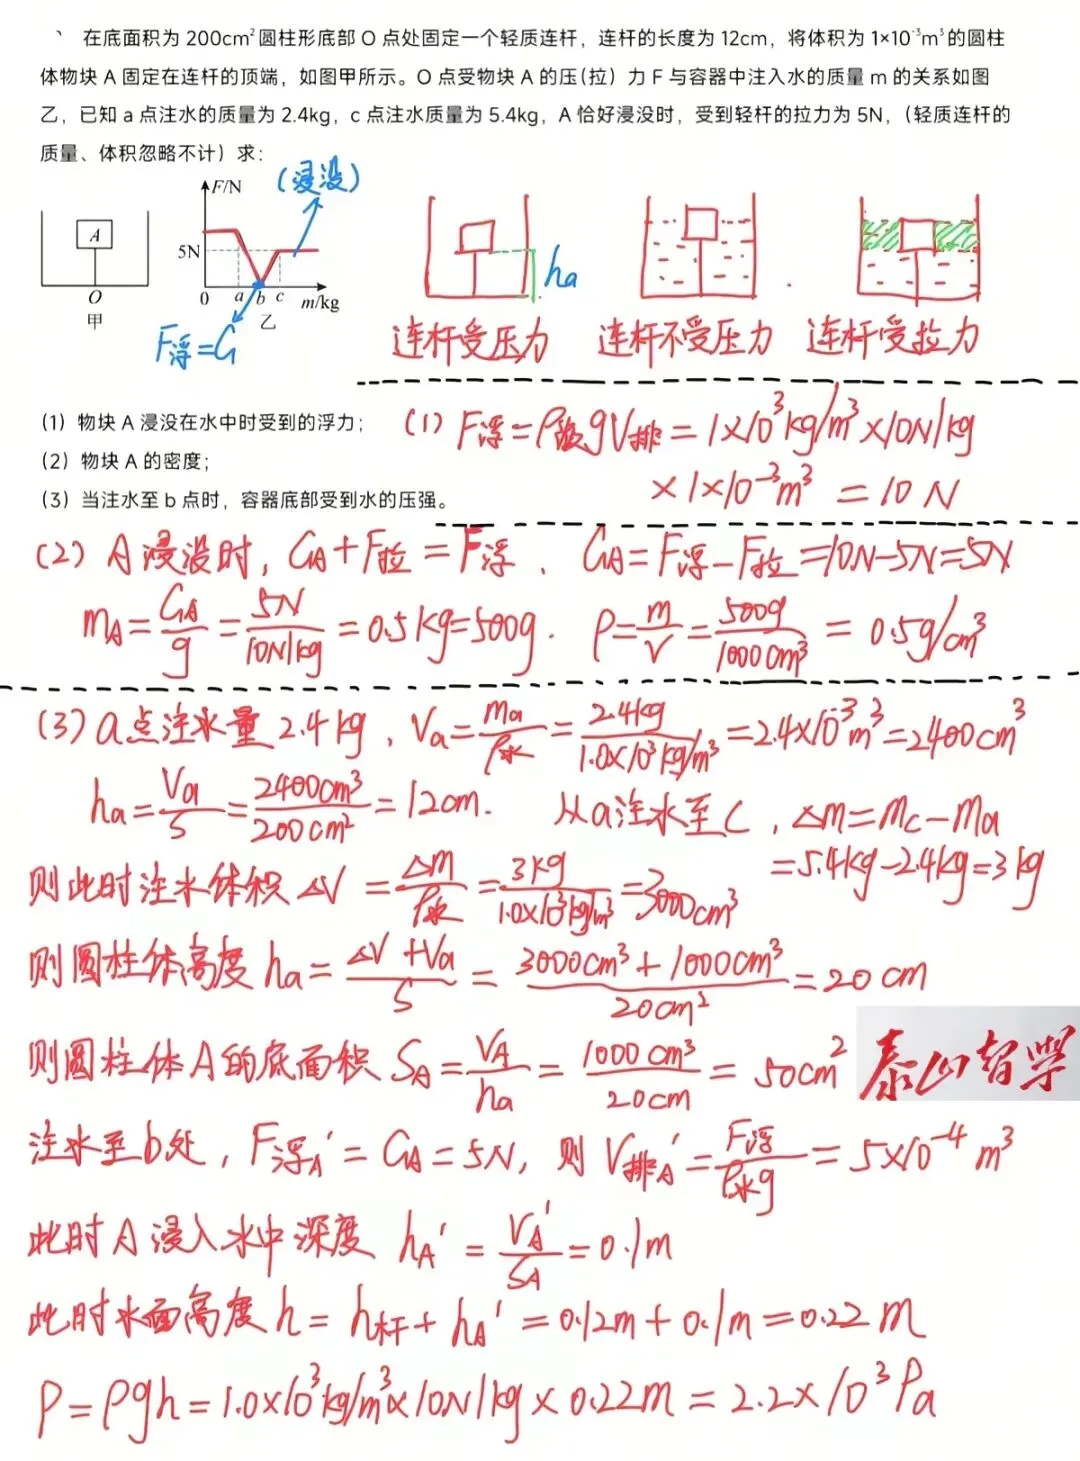 在底面积为 200cm²圆柱形底部 O 点处固定一个轻质连杆，连杆的长度为 12cm，将体积为 1×10⁻³m³的圆柱
体物块 A 固定在连杆的顶端，如图甲所示。O 点受物块 A 的压(拉）力 F 与容器中注入水的质量 m 的关系如图
乙，已知 a 点注水的质量为 2.4kg，c 点注水质量为 5.4kg，A 恰好浸没时，受到轻杆的拉力为 5N，(轻质连杆的
质量、体积忽略不计）求：
A
O
甲
F/N
5N
0 a b c m/kg
乙
(浸没)
F浮=G
ha
连杆受压力
连杆不受压力
连杆受拉力
(1) 物块 A 浸没在水中时受到的浮力；
(2) 物块 A 的密度；
(3) 当注水至 b 点时，容器底部受到水的压强。
(1) F浮=ρ液gV排=1×10³kg/m³×10N/kg
×1×10⁻³m³ =10N
(2) A浸没时, GA+F拉=F浮、 GA=F浮-F拉=10N-5N=5N
mA=GA/g=5N/10N/kg=0.5kg=500g. ρ=m/V=500g/1000cm³=0.5g/cm³
(3) a点注水量2.4kg, Va=ma/ρ水=2.4kg/1.0×10³kg/m³=2.4×10⁻³m³=2400cm³
ha=Va/S=2400cm³/200cm²=12cm. 从a注水至C, △m=mc-ma
=5.4kg-2.4kg=3kg
则此时注水体积△V=△m/ρ水=3kg/1.0×10³kg/m³=3000cm³
则圆柱体高度ha=△V+Va/S=3000cm³+1000cm³/20cm²=20cm
则圆柱体A的底面积SA=VA/ha=1000cm³/20cm=50cm²
泰山智学
注水至b处, F浮A'=GA=5N, 则V排A'=F浮/ρ水g=5×10⁻⁴m³
此时A浸入水中深度hA'=VA'/SA=0.1m
此时水面高度h=h杆+hA'=0.12m+0.1m=0.22m
P=ρgh=1.0×10³kg/m³×10N/kg×0.22m=2.2×10³Pa